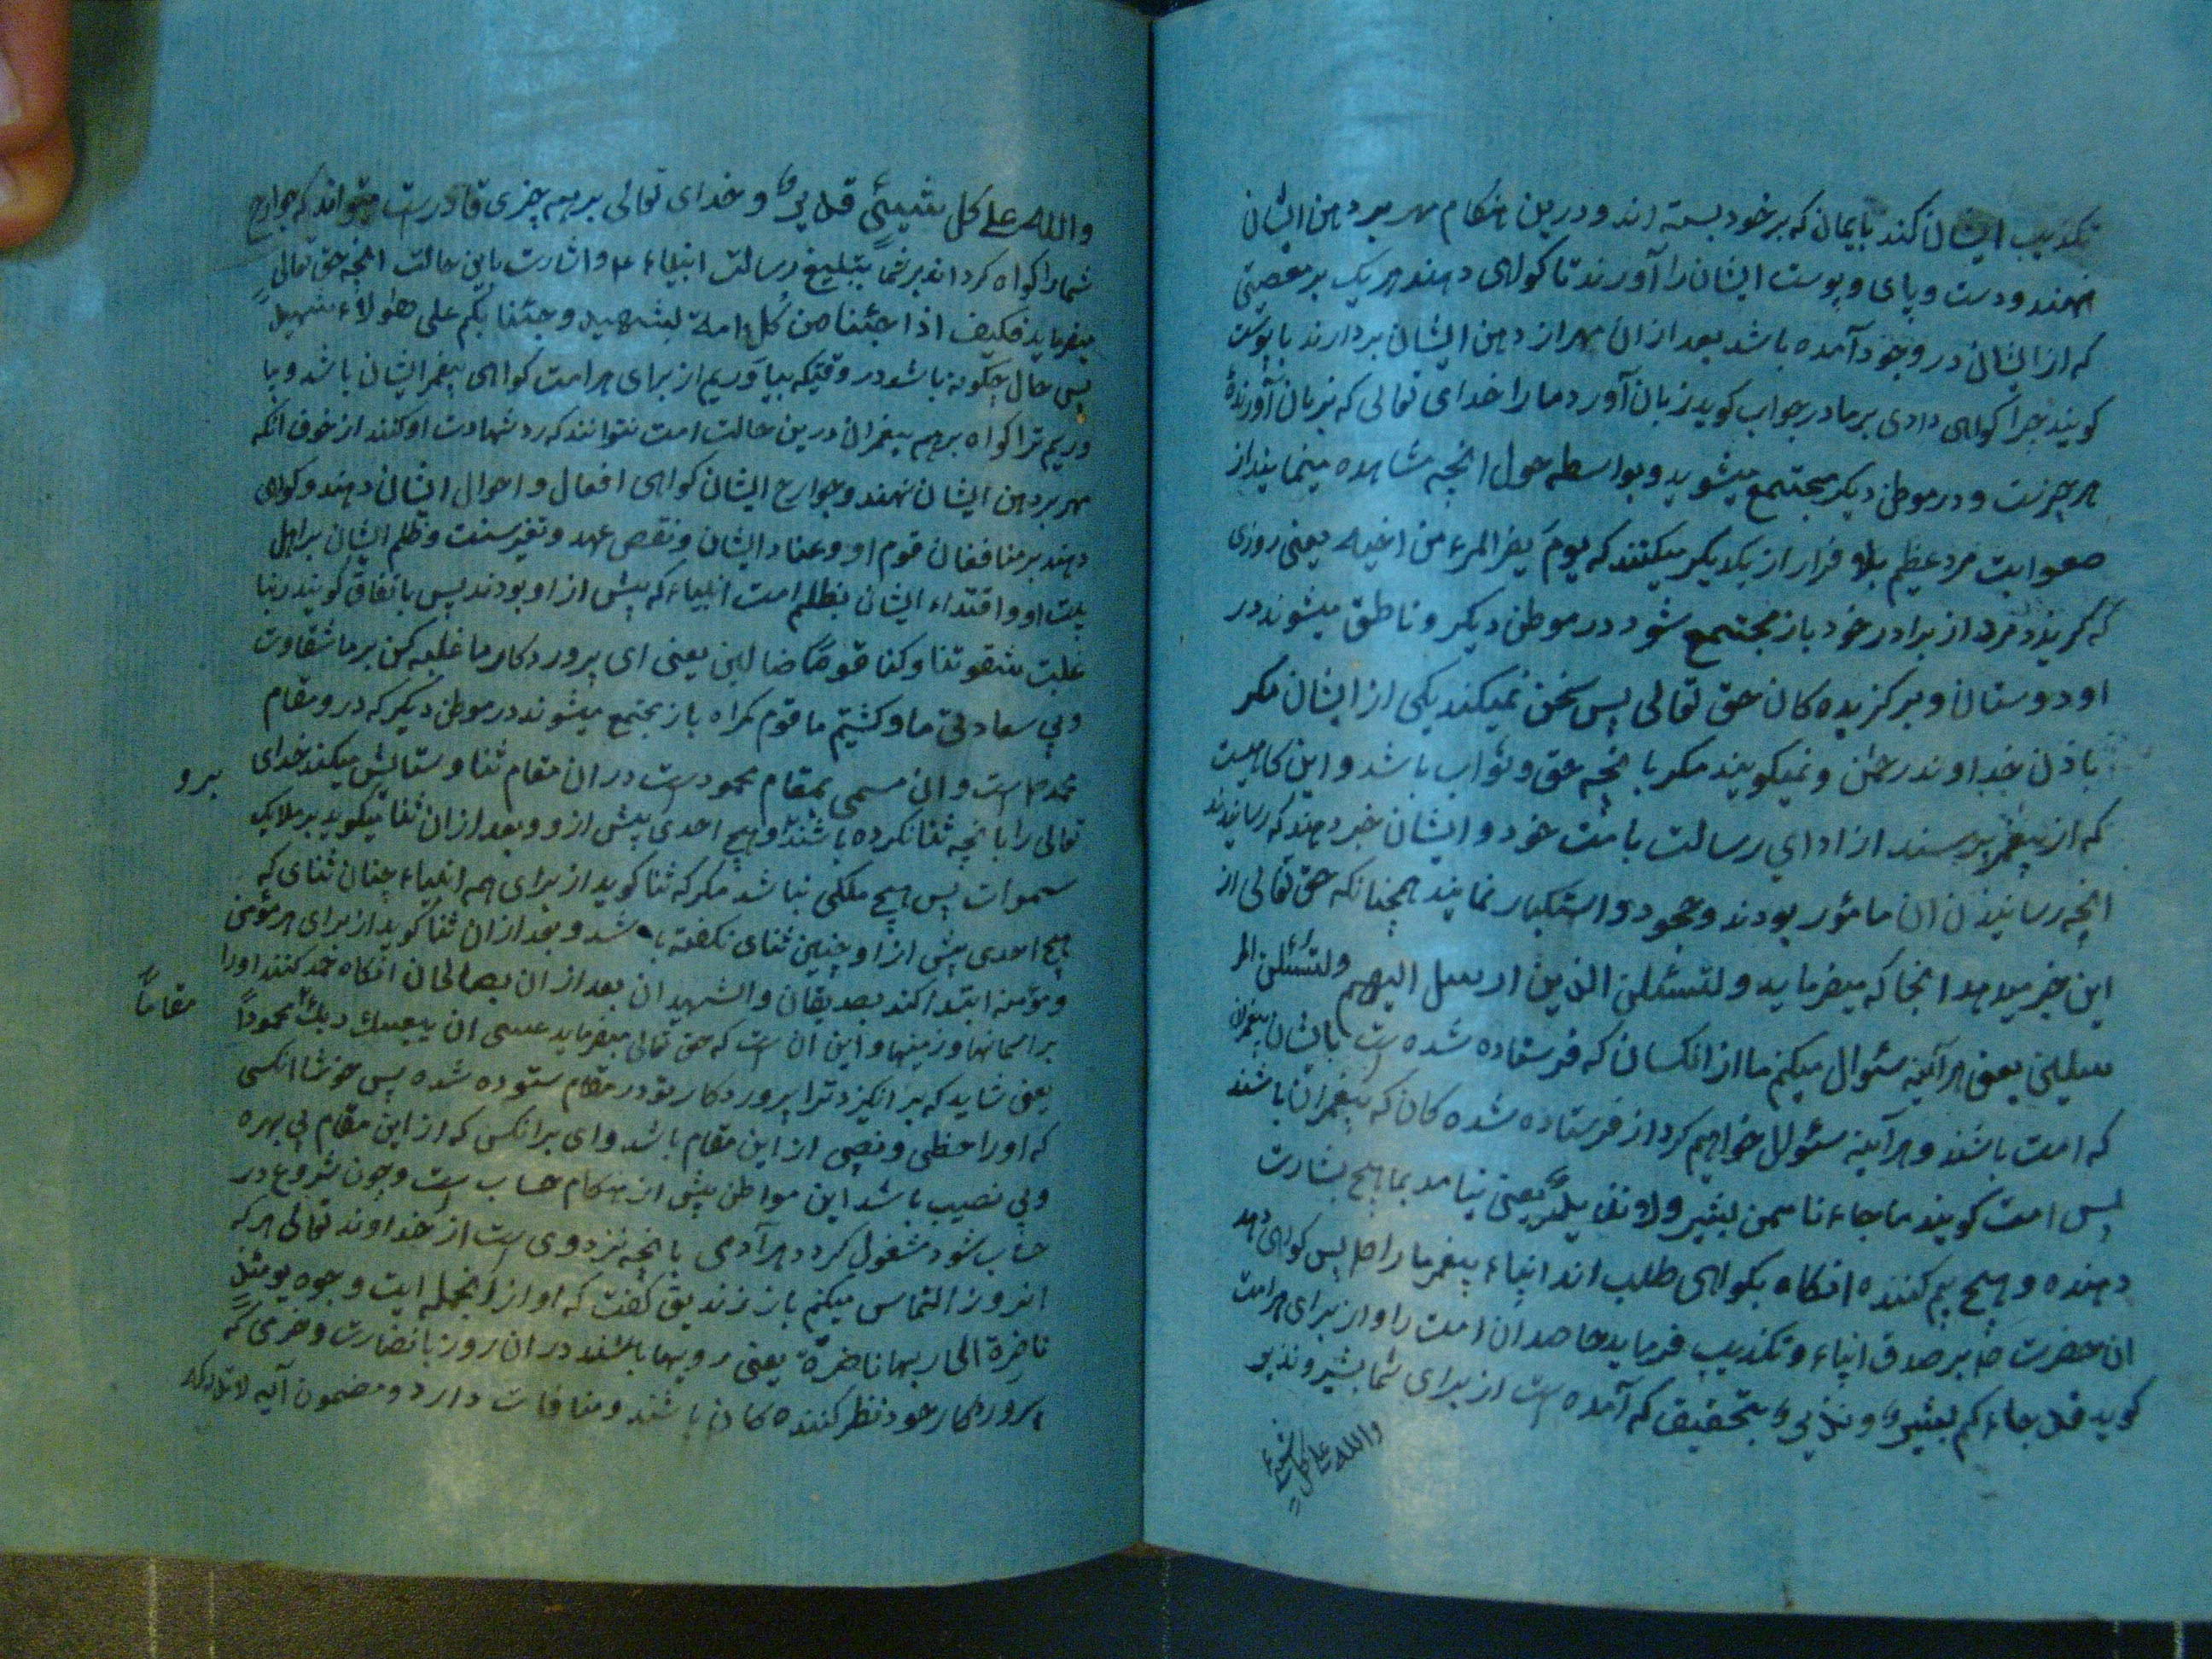 تکذیب ایشان کند بایمان که بر خود بسته اند و درین هنکام مهر بر دهن ایشان
نهند و دست و پای و پوست ایشان را آورند تا کواهی دهند هر یک بر معصیتی
که از ایشان در وجود آمده باشد بعد از ان مهر از دهن ایشان بردارند با پوست
کویند چرا کواهی دادی بر ما در جواب کوید زبان آورد ما را خدای تعالی که بزبان آورندهٔ
هر چیزست و در موطن دیکر مجتمع میشوید و بواسطه هول انچه مشاهده مینمایند از
صعوابت مرد عظیم بلاء فرار از یکدیکر میکنند که یومَ یفرّ المرء من اخیه یعنی روزی
که کریزد مرد از برادر خود باز مجتمع شود در موطن دیکر و ناطق میشوند در
او دوستان و برکزیده کان حق تعالی پس سخن نمیکند یکی از ایشان مکر
باذن خداوند رحمن و نمیکویند مکر بانچه حق و ثواب باشد و این کاهیست
که از پیغمبر پرسند از ادای رسالت بامت خود و ایشان خبر دهند که رسانیدند
انچه رسانیدن ان مامور بودند و جحود و استکبار نمایند همچنانکه حق تعالی از
این خبر میدهد انجا که میفرماید و لتسئلن الذین ارسل الیهم و لتسئلن المر
سلین یعنی هر آینه سئوال میکنم ما از انکسان که فرستاده شده است بایشان پیغمبران
که امت باشند و هر آینه سئوال خواهیم کرد از فرستاده شده کان که پیغمبران باشند
پس امت کویند ما جاءنا من بشیر ولا نذیر یعنی نیامد بما هیچ بشارت
دهنده و هیچ بیم کننده انکاه بکواهی طلب اند انبیاء پیغمبر ما را ص پس کواهی دهد
ان حضرت ص بر صدق انبیاء و تکذیب فرماید جاحدان امت را و از برای هر امت
کوید قل جاءکم بشیر و نذیر بتحقیق که آمده است از برای شما بشیر و نذیر
والله علی کل شیء
والله علی کل شیئی قدیر و خدای تعالی بر همه چیزی قادرست میتواند که جوارح
شما را کواه کرداند بر شما بتبلیغ رسالت انبیاء ع و اشارت باین حالت انچه حق تعالی
میفرماید فکیف اذا جئنا من کُل امة بشهید و جئنا بکم علی هؤلاء شهید
پس حال چکونه باشد در وقتیکه بیاوریم از برای هر امت کواهی پیغمبر ایشان باشد و بیا
وریم ترا کواه بر همه پیغمبران درین حالت امت نتوانند که رد شهادت او کنند از خوف انکه
مهر بر دهن ایشان نهند و جوارح ایشان کواهی افعال و احوال ایشان دهند و کواهی
دهند بر منافقان قوم او و عناد ایشان و نقص عهد و تغیر سنت و ظلم ایشان بر اهل
بیت او و اقتداء ایشان بظلم امت انبیاء که پیش از او بودند پس باتفاق کویند ربنا
غلبت شقوتنا و کنا قومًا ضالین یعنی ای پروردکار ما غلبه کن بر ما شقاوت
و بی سعادتی ما و کشتیم ما قوم کمراه باز مجتمع میشوند در موطن دیکر که در و مقام
محمد ص است و ان مسمی بمقام محمود است در ان مقام ثنا و ستایش میکند خدای
تعالی را بانچه ثنا نکرده باشند و هیچ احدی پیش از و و بعد از ان ثنا میکوید بر ملایک
برو
سموات پس هیچ ملکی نباشد مکر که ثنا کوید از برای همه انبیاء چنان ثنای که
هیچ احدی پیش از او چنین ثنای نکفته باشد و بعد از ان ثنا کوید از برای هر مؤمن
و مؤمنه ابتدا کند بصدیقان و الشهیدان بعد از ان بصالحان انکاه حمد کنند او را
بر اسمانها و زمینها و این ان است که حق تعالی میفرماید عسی ان یبعثک ربک محموداً
مقاماً
یعنی شاید که بر انکیزد ترا پروردکار تو در مقام ستوده شده پس خوشا انکسی
که او را حظی و نصیبی از این مقام باشد و ای بر انکس که از این مقام بی بهره
و بی نصیب باشد این مواطن پیش از هنکام حساب است و چون شروع در
حساب شود مشغول کردد هر آدمی بانچه نزد وی است از خداوند تعالی هر که
انروز التماس میکنم باز زندیق کفت که او از انجمله ایت وجوه یومئذٍ
ناضرة الی ربها ناضرة یعنی رویها باشند در ان روز بانضارت و خرمی که
پروردکار خود نظر کننده کان باشند و منافات دارد و مضمون آیه لا تدرکه